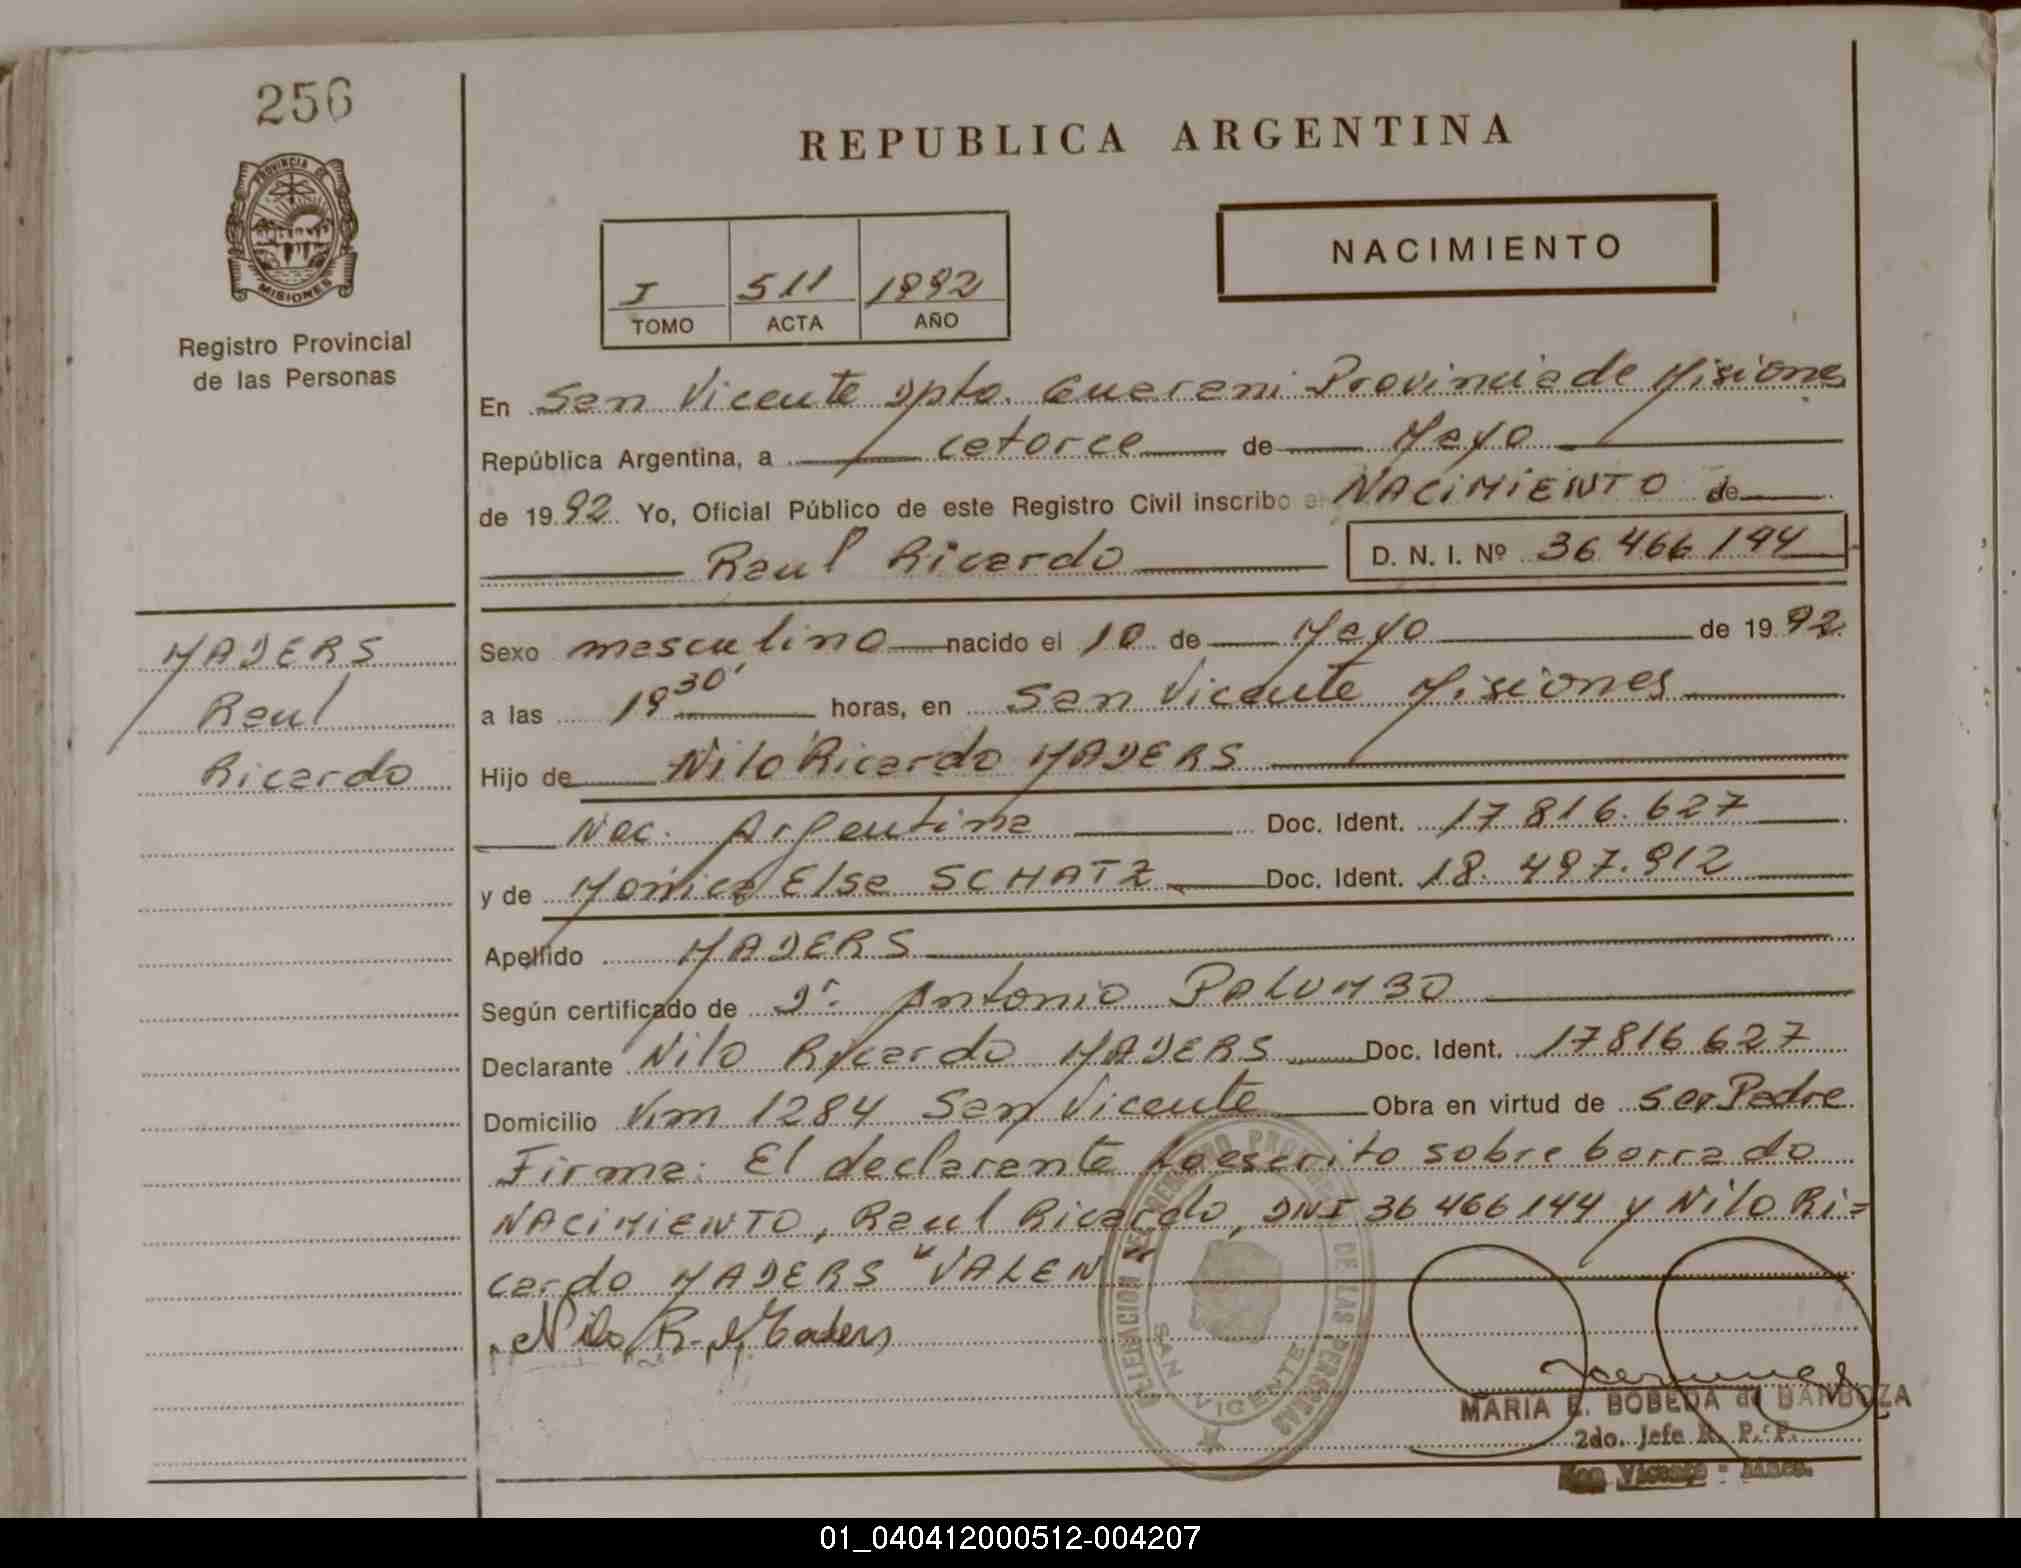 256
PROVINCIA DE
MISIONES
Registro Provincial
de las Personas
REPUBLICA ARGENTINA
NACIMIENTO
I 511 1992
TOMO ACTA AÑO
En San Vicente Dpto. Guarani Provincia de Misiones
República Argentina, a catorce de Mayo
de 1992 Yo, Oficial Público de este Registro Civil inscribo el NACIMIENTO de
Raul Ricardo D. N. I. Nº 36 466 144
MADERS
Raul
Ricardo
Sexo masculino nacido el 10 de Mayo de 1992
a las 19 30' horas, en San Vicente Misiones
Hijo de Nilo Ricardo MADERS
Nac. Argentina Doc. Ident. 17 816.627
y de Monica Elsa SCHATZ Doc. Ident. 18.497.912
Apellido MADERS
Según certificado de Dr. Antonio PALUMBO
Declarante Nilo Ricardo MADERS Doc. Ident. 17816 627
Domicilio Km 1284 San Vicente Obra en virtud de ser Padre
Firma: El declarante Lo escrito sobre borrado
NACIMIENTO, Raul Ricardo, DNI 36 466 144 y Nilo Ri=
cardo MADERS "VALEN"
Nilo R. Maders
DELEGACION DEL REGISTRO PROV. DE LAS PERSONAS
SAN VICENTE
MARIA E. BOBEDA de BARBOZA
2do. Jefe R. P. P.
San Vicente - Mnes.
01_040412000512-004207